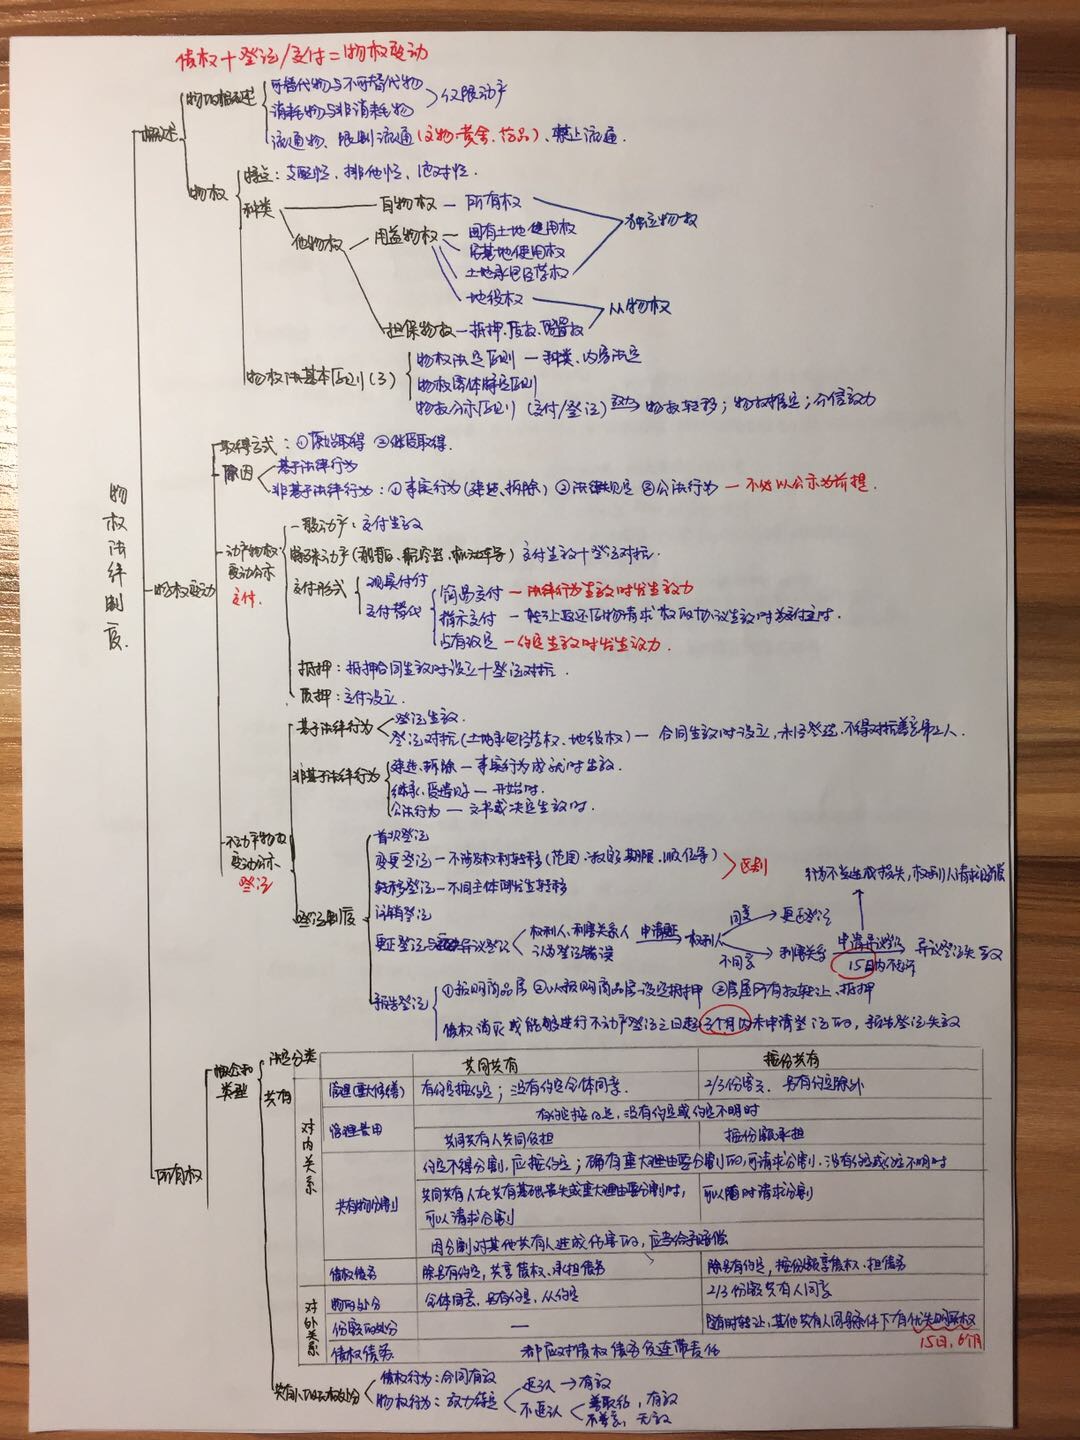 债权+登记/交付=物权变动
物权法律制度
概述
物的概述
可替代物与不可替代物
消耗物与非消耗物
仅限动产
流通物、限制流通(文物、黄金、药品)、禁止流通.
物权
特点:支配性、排他性、绝对性.
种类
自物权—所有权
独立物权
他物权
用益物权
国有土地使用权
宅基地使用权
土地承包经营权
地役权
从物权
担保物权—抵押、质权、留置权
物权法基本原则(3)
物权法定原则—种类、内容法定
物权客体特定原则
物权公示原则(交付/登记)效力→物权转移;物权推定;公信效力
物权变动
取得方式:①原始取得 ②继受取得.
原因
基于法律行为
非基于法律行为:①事实行为(建造、拆除) ②法律规定 ③公法行为—不必以公示为前提.
动产物权变动公示
交付.
一般动产:交付生效
特殊动产(船舶、航空器、机动车等)交付生效+登记对抗.
交付形式
现实交付
交付替代
简易交付—法律行为生效时发生效力
指示交付—转让返还原物请求权的协议生效时为交付之时.
占有改定—约定生效时发生效力.
抵押:抵押合同生效时设立+登记对抗.
质押:交付设立.
不动产物权变动公示
登记
基于法律行为
登记生效.
登记对抗(土地承包经营权、地役权)—合同生效时设立,未经登记,不得对抗善意第三人.
非基于法律行为
建造、拆除—事实行为成就时生效.
继承、受遗赠—开始时.
公法行为—文书或决定生效时.
登记制度
首次登记
变更登记—不涉及权利转移(范围、抵押期限、顺位等)
区别
转移登记—不同主体间发生转移
注销登记
更正登记与异议登记
权利人、利害关系人
认为登记错误
申请更正
权利人
同意
更正登记
不同意
利害关系
申请异议登记
15日内不起诉
异议登记失效
行为不当造成损失,权利人请求赔偿
预告登记
①预购商品房 ②以预购商品房设定抵押 ③房屋所有权转让、抵押
债权消灭或能够进行不动产登记之日起3个月内未申请登记的,预告登记失效
所有权
概念和类型
法定分类
共有
共同共有 按份共有
对内关系
管理(重大修缮) 有约定按约定;没有约定全体同意. 2/3份额、另有约定除外
管理费用 有约定按约定,没有约定或约定不明时
共同共有人共同负担 按份额承担
共有物分割
约定不得分割,应按约定;确有重大理由要分割的,可请求分割.没有约定或约定不明时
共同共有人在共有基础丧失或重大理由要分割时, 可以随时请求分割
可以请求分割
因分割对其他共有人造成伤害的,应当给予赔偿
债权债务 除另有约定,共享债权、承担债务 除另有约定,按份额享债权、担债务
对外关系
物的处分 全体同意,另有约定,从约定 2/3份额共有人同意
份额的处分 — 随时转让,其他共有人同等条件下有优先购买权
15日,6个月
债权债务. 都应对债权债务负连带责任
债权行为:合同有效
物权行为:效力待定
追认→有效
不追认
善取得,有效
不善意,无效